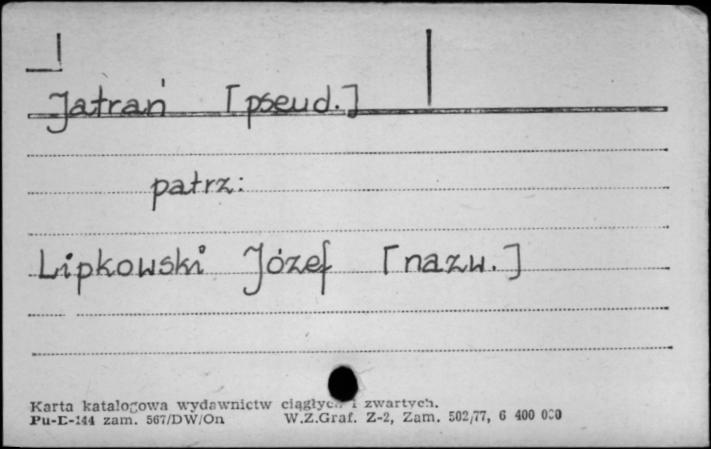 Jatrań [pseud.]
patrz:
Lipkowski Józef [nazw.]
Karta katalogowa wydawnictw ciągłych i zwartych.
Pu-D-144 zam. 567/DW/On W.Z.Graf. Z-2, Zam. 502/77, 6 400 000